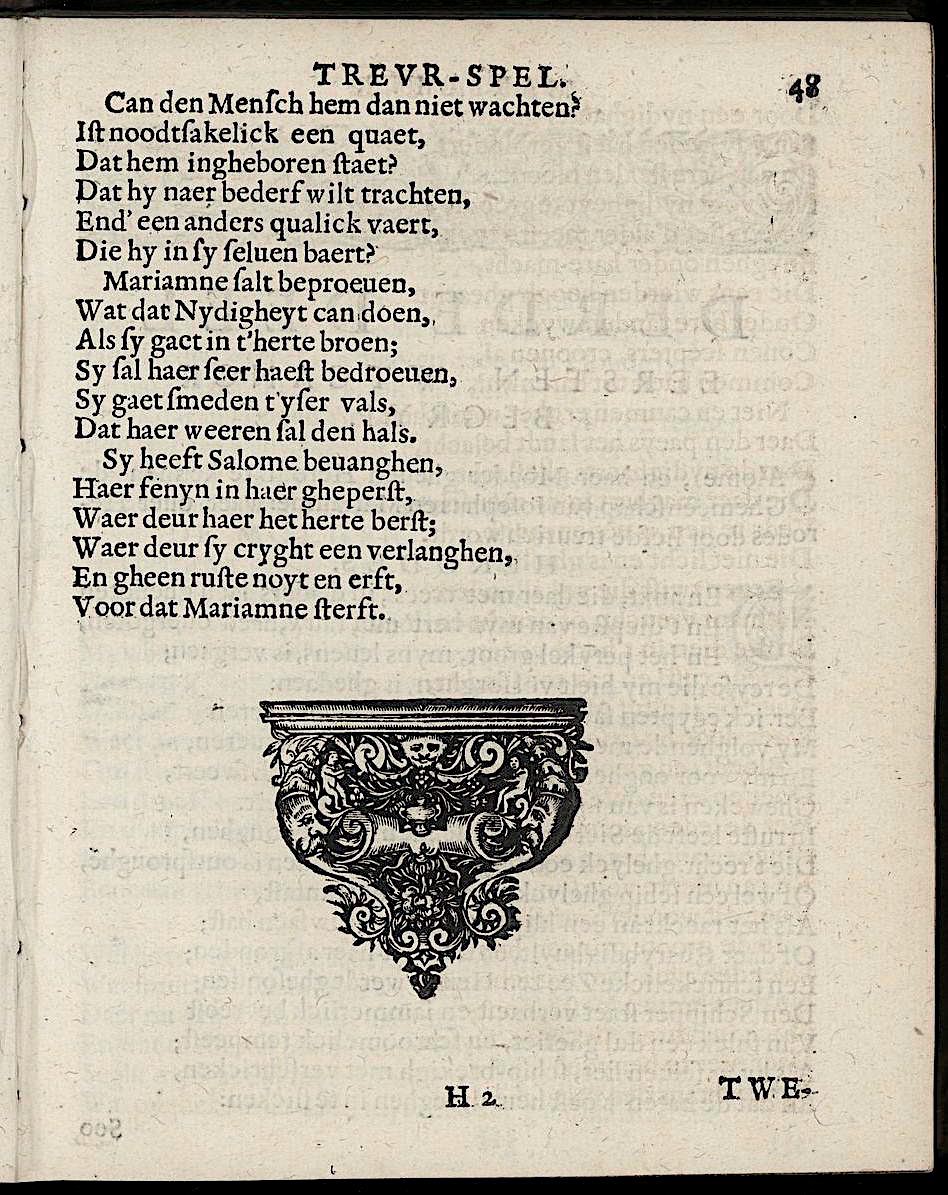 TREVR-SPEL.
48
Can den Menſch hem dan niet wachten?
Iſt noodtſakelick een quaet,
Dat hem ingheboren ſtaet?
Dat hy naer bederf wilt trachten,
End' een anders qualick vaert,
Die hy in ſy ſeluen baert?
Mariamne ſalt beproeuen,
Wat dat Nydigheyt can doen,
Als ſy gaet in t'herte broen;
Sy ſal haer ſeer haeſt bedroeuen,
Sy gaet ſmeden t'yſer vals,
Dat haer weeren ſal den hals.
Sy heeft Salome beuanghen,
Haer fenyn in haer gheperſt,
Waer deur haer het herte berſt;
Waer deur ſy cryght een verlanghen,
En gheen ruſte noyt en erft,
Voor dat Mariamne ſterft.
H 2
TWE-